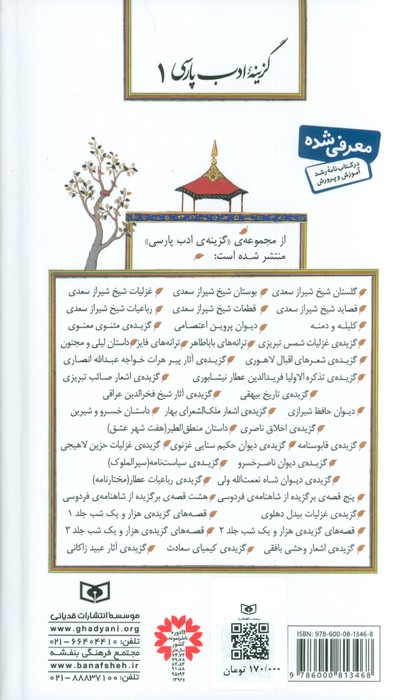 گزینهٔ ادب پارسی ۱
معرفی شده
در کتاب‌نامه رشد
آموزش و پرورش
از مجموعه‌ی «گزینه‌ی ادب پارسی»
منتشر شده است:
گلستان شیخ شیراز سعدی بوستان شیخ شیراز سعدی غزلیات شیخ شیراز سعدی
قصاید شیخ شیراز سعدی قطعات شیخ شیراز سعدی رباعیات شیخ شیراز سعدی
کلیله و دمنه دیوان پروین اعتصامی گزیده‌ی مثنوی معنوی
گزیده‌ی غزلیات شمس تبریزی ترانه‌های باباطاهر ترانه‌های فایز داستان لیلی و مجنون
گزیده‌ی شعرهای اقبال لاهوری گزیده‌ی آثار پیر هرات خواجه عبدالله انصاری
گزیده‌ی تذکره الاولیا فریدالدین عطار نیشابوری گزیده‌ی اشعار صائب تبریزی
گزیده‌ی تاریخ بیهقی گزیده‌ی آثار شیخ فخرالدین عراقی
دیوان حافظ شیرازی گزیده‌ی اشعار ملک‌الشعرای بهار داستان خسرو و شیرین
گزیده‌ی اخلاق ناصری داستان منطق‌الطیر(هفت شهر عشق)
گزیده‌ی قابوسنامه گزیده‌ی دیوان حکیم سنایی غزنوی گزیده‌ی غزلیات حزین لاهیجی
گزیده‌ی دیوان ناصرخسرو گزیده‌ی سیاست‌نامه(سیرالملوک)
گزیده‌ی دیوان شاه نعمت‌الله ولی گزیده‌ی رباعیات عطار(مختارنامه)
پنج قصه‌ی برگزیده از شاهنامه‌ی فردوسی هشت قصه‌ی برگزیده از شاهنامه‌ی فردوسی
گزیده‌ی غزلیات بیدل دهلوی قصه‌های گزیده‌ی هزار و یک شب جلد ۱
قصه‌های گزیده‌ی هزار و یک شب جلد ۲ قصه‌های گزیده‌ی هزار و یک شب جلد ۳
گزیده‌ی اشعار وحشی بافقی گزیده‌ی کیمیای سعادت گزیده‌ی آثار عبید زاکانی
موسسه انتشارات قدیانی
www.ghadyani.org
تلفن: ۶۶۴۰۴۴۱۰-۰۲۱
مجتمع فرهنگی بنفشه
www.banafsheh.ir
تلفن: ۸۸۸۳۷۱۰۰-۰۲۱
۱۷۰/۰۰۰ تومان
ISBN: 978-600-08-1346-8
9 786000 813468